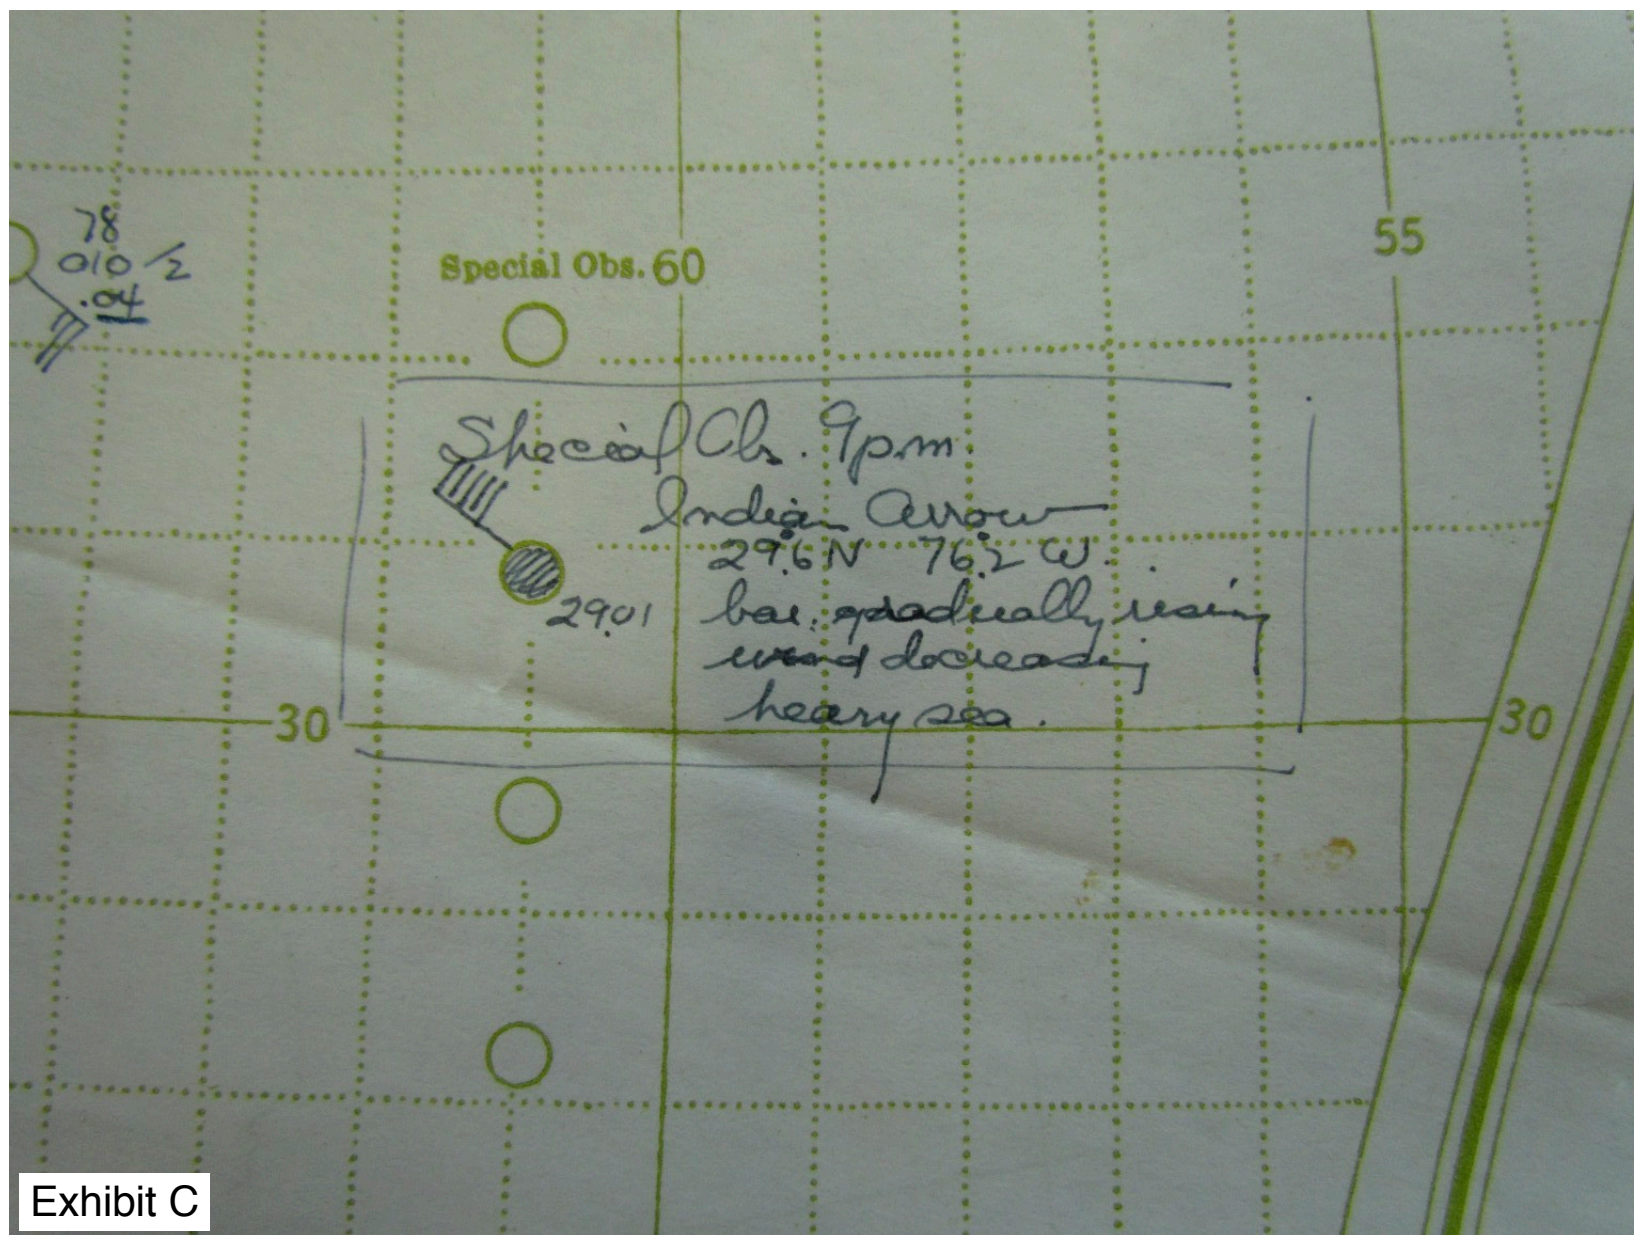 78
010 /2
.04
Special Obs. 60
55
Special Obs. 9pm.
Indian Arrow
29.6 N 76.2 W.
29.01
bar. gradually rising
wind decreasing
heavy sea.
30
30
Exhibit C